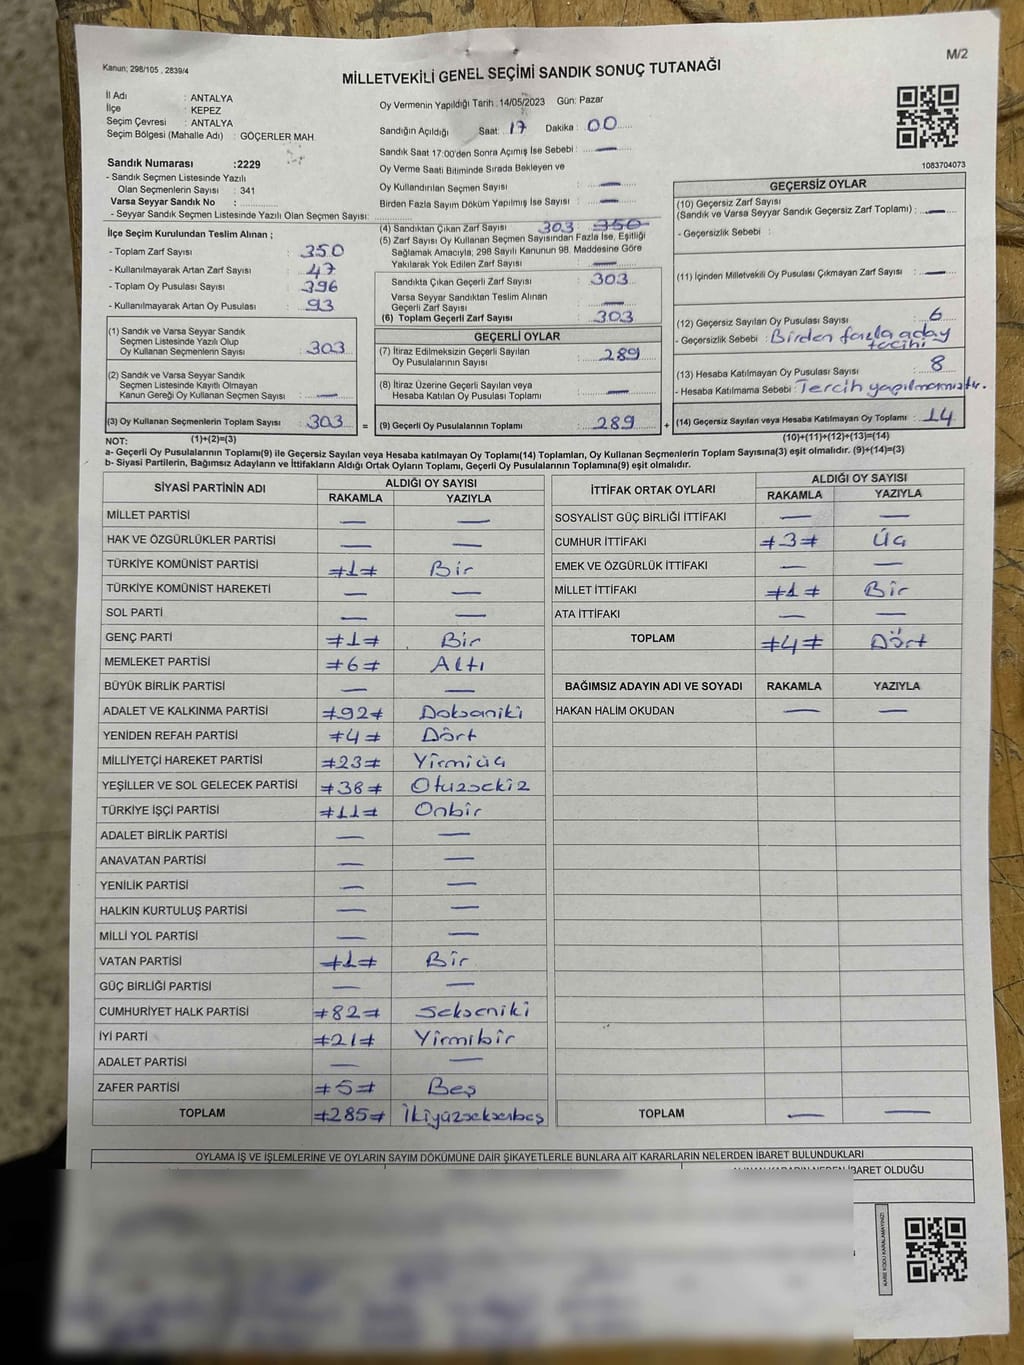 Kanun; 298/105 , 2839/4
M/2
MİLLETVEKİLİ GENEL SEÇİMİ SANDIK SONUÇ TUTANAĞI
İl Adı : ANTALYA
İlçe : KEPEZ
Seçim Çevresi : ANTALYA
Seçim Bölgesi (Mahalle Adı) : GÖÇERLER MAH.
Sandık Numarası :2229
- Sandık Seçmen Listesinde Yazılı
Olan Seçmenlerin Sayısı : 341
Varsa Seyyar Sandık No :
- Seyyar Sandık Seçmen Listesinde Yazılı Olan Seçmen Sayısı:
Oy Vermenin Yapıldığı Tarih :14/05/2023 Gün: Pazar
Sandığın Açıldığı Saat: 17 Dakika : 00
Sandık Saat 17:00'den Sonra Açımış İse Sebebi : —
Oy Verme Saati Bitiminde Sırada Bekleyen ve
Oy Kullandırılan Seçmen Sayısı : —
Birden Fazla Sayım Döküm Yapılmış İse Sayısı : —
1083704073
İlçe Seçim Kurulundan Teslim Alınan ;
- Toplam Zarf Sayısı : 350
- Kullanılmayarak Artan Zarf Sayısı : 47
- Toplam Oy Pusulası Sayısı : 396
- Kullanılmayarak Artan Oy Pusulası : 93
(1) Sandık ve Varsa Seyyar Sandık
Seçmen Listesinde Yazılı Olup
Oy Kullanan Seçmenlerin Sayısı : 303
(2) Sandık ve Varsa Seyyar Sandık
Seçmen Listesinde Kayıtlı Olmayan
Kanun Gereği Oy Kullanan Seçmen Sayısı : —
(3) Oy Kullanan Seçmenlerin Toplam Sayısı : 303 =
(4) Sandıktan Çıkan Zarf Sayısı : 303 350
(5) Zarf Sayısı Oy Kullanan Seçmen Sayısından Fazla İse, Eşitliği
Sağlamak Amacıyla, 298 Sayılı Kanunun 98. Maddesine Göre
Yakılarak Yok Edilen Zarf Sayısı : —
Sandıkta Çıkan Geçerli Zarf Sayısı : 303
Varsa Seyyar Sandıktan Teslim Alınan
Geçerli Zarf Sayısı : —
(6) Toplam Geçerli Zarf Sayısı : 303
GEÇERLİ OYLAR
(7) İtiraz Edilmeksizin Geçerli Sayılan
Oy Pusulalarının Sayısı : 289
(8) İtiraz Üzerine Geçerli Sayılan veya
Hesaba Katılan Oy Pusulası Toplamı : —
(9) Geçerli Oy Pusulalarının Toplamı : 289 +
GEÇERSİZ OYLAR
(10) Geçersiz Zarf Sayısı
(Sandık ve Varsa Seyyar Sandık Geçersiz Zarf Toplamı) : —
- Geçersizlik Sebebi :
(11) İçinden Milletvekili Oy Pusulası Çıkmayan Zarf Sayısı : —
(12) Geçersiz Sayılan Oy Pusulası Sayısı : 6
- Geçersizlik Sebebi : Birden fazla aday
tercihi
(13) Hesaba Katılmayan Oy Pusulası Sayısı : 8
- Hesaba Katılmama Sebebi : Tercih yapılmamıştır.
(14) Geçersiz Sayılan veya Hesaba Katılmayan Oy Toplamı : 14
NOT: (1)+(2)=(3)
(10)+(11)+(12)+(13)=(14)
a- Geçerli Oy Pusulalarının Toplamı(9) ile Geçersiz Sayılan veya Hesaba katılmayan Oy Toplamı(14) Toplamları, Oy Kullanan Seçmenlerin Toplam Sayısına(3) eşit olmalıdır. (9)+(14)=(3)
b- Siyasi Partilerin, Bağımsız Adayların ve İttifakların Aldığı Ortak Oyların Toplamı, Geçerli Oy Pusulalarının Toplamına(9) eşit olmalıdır.
SİYASİ PARTİNİN ADI ALDIĞI OY SAYISI
RAKAMLA YAZIYLA
MİLLET PARTİSİ — —
HAK VE ÖZGÜRLÜKLER PARTİSİ — —
TÜRKİYE KOMÜNİST PARTİSİ ≠1≠ Bir
TÜRKİYE KOMÜNİST HAREKETİ — —
SOL PARTİ — —
GENÇ PARTİ ≠1≠ Bir
MEMLEKET PARTİSİ ≠6≠ Altı
BÜYÜK BİRLİK PARTİSİ — —
ADALET VE KALKINMA PARTİSİ ≠92≠ Doksaniki
YENİDEN REFAH PARTİSİ ≠4≠ Dört
MİLLİYETÇİ HAREKET PARTİSİ ≠23≠ Yirmiüç
YEŞİLLER VE SOL GELECEK PARTİSİ ≠38≠ Otuzsekiz
TÜRKİYE İŞÇİ PARTİSİ ≠11≠ Onbir
ADALET BİRLİK PARTİSİ — —
ANAVATAN PARTİSİ — —
YENİLİK PARTİSİ — —
HALKIN KURTULUŞ PARTİSİ — —
MİLLİ YOL PARTİSİ — —
VATAN PARTİSİ ≠1≠ Bir
GÜÇ BİRLİĞİ PARTİSİ — —
CUMHURİYET HALK PARTİSİ ≠82≠ Sekseniki
İYİ PARTİ ≠21≠ Yirmibir
ADALET PARTİSİ — —
ZAFER PARTİSİ ≠5≠ Beş
TOPLAM ≠285≠ İkiyüzseksenbeş
İTTİFAK ORTAK OYLARI ALDIĞI OY SAYISI
RAKAMLA YAZIYLA
SOSYALİST GÜÇ BİRLİĞİ İTTİFAKI — —
CUMHUR İTTİFAKI ≠3≠ Üç
EMEK VE ÖZGÜRLÜK İTTİFAKI — —
MİLLET İTTİFAKI ≠1≠ Bir
ATA İTTİFAKI — —
TOPLAM ≠4≠ Dört
BAĞIMSIZ ADAYIN ADI VE SOYADI RAKAMLA YAZIYLA
HAKAN HALİM OKUDAN — —
TOPLAM — —
OYLAMA İŞ VE İŞLEMLERİNE VE OYLARIN SAYIM DÖKÜMÜNE DAİR ŞİKAYETLERLE BUNLARA AİT KARARLARIN NELERDEN İBARET BULUNDUKLARI
ALINAN KARARIN NEDEN İBARET OLDUĞU
KARE KODU KARALAMAYINIZ!